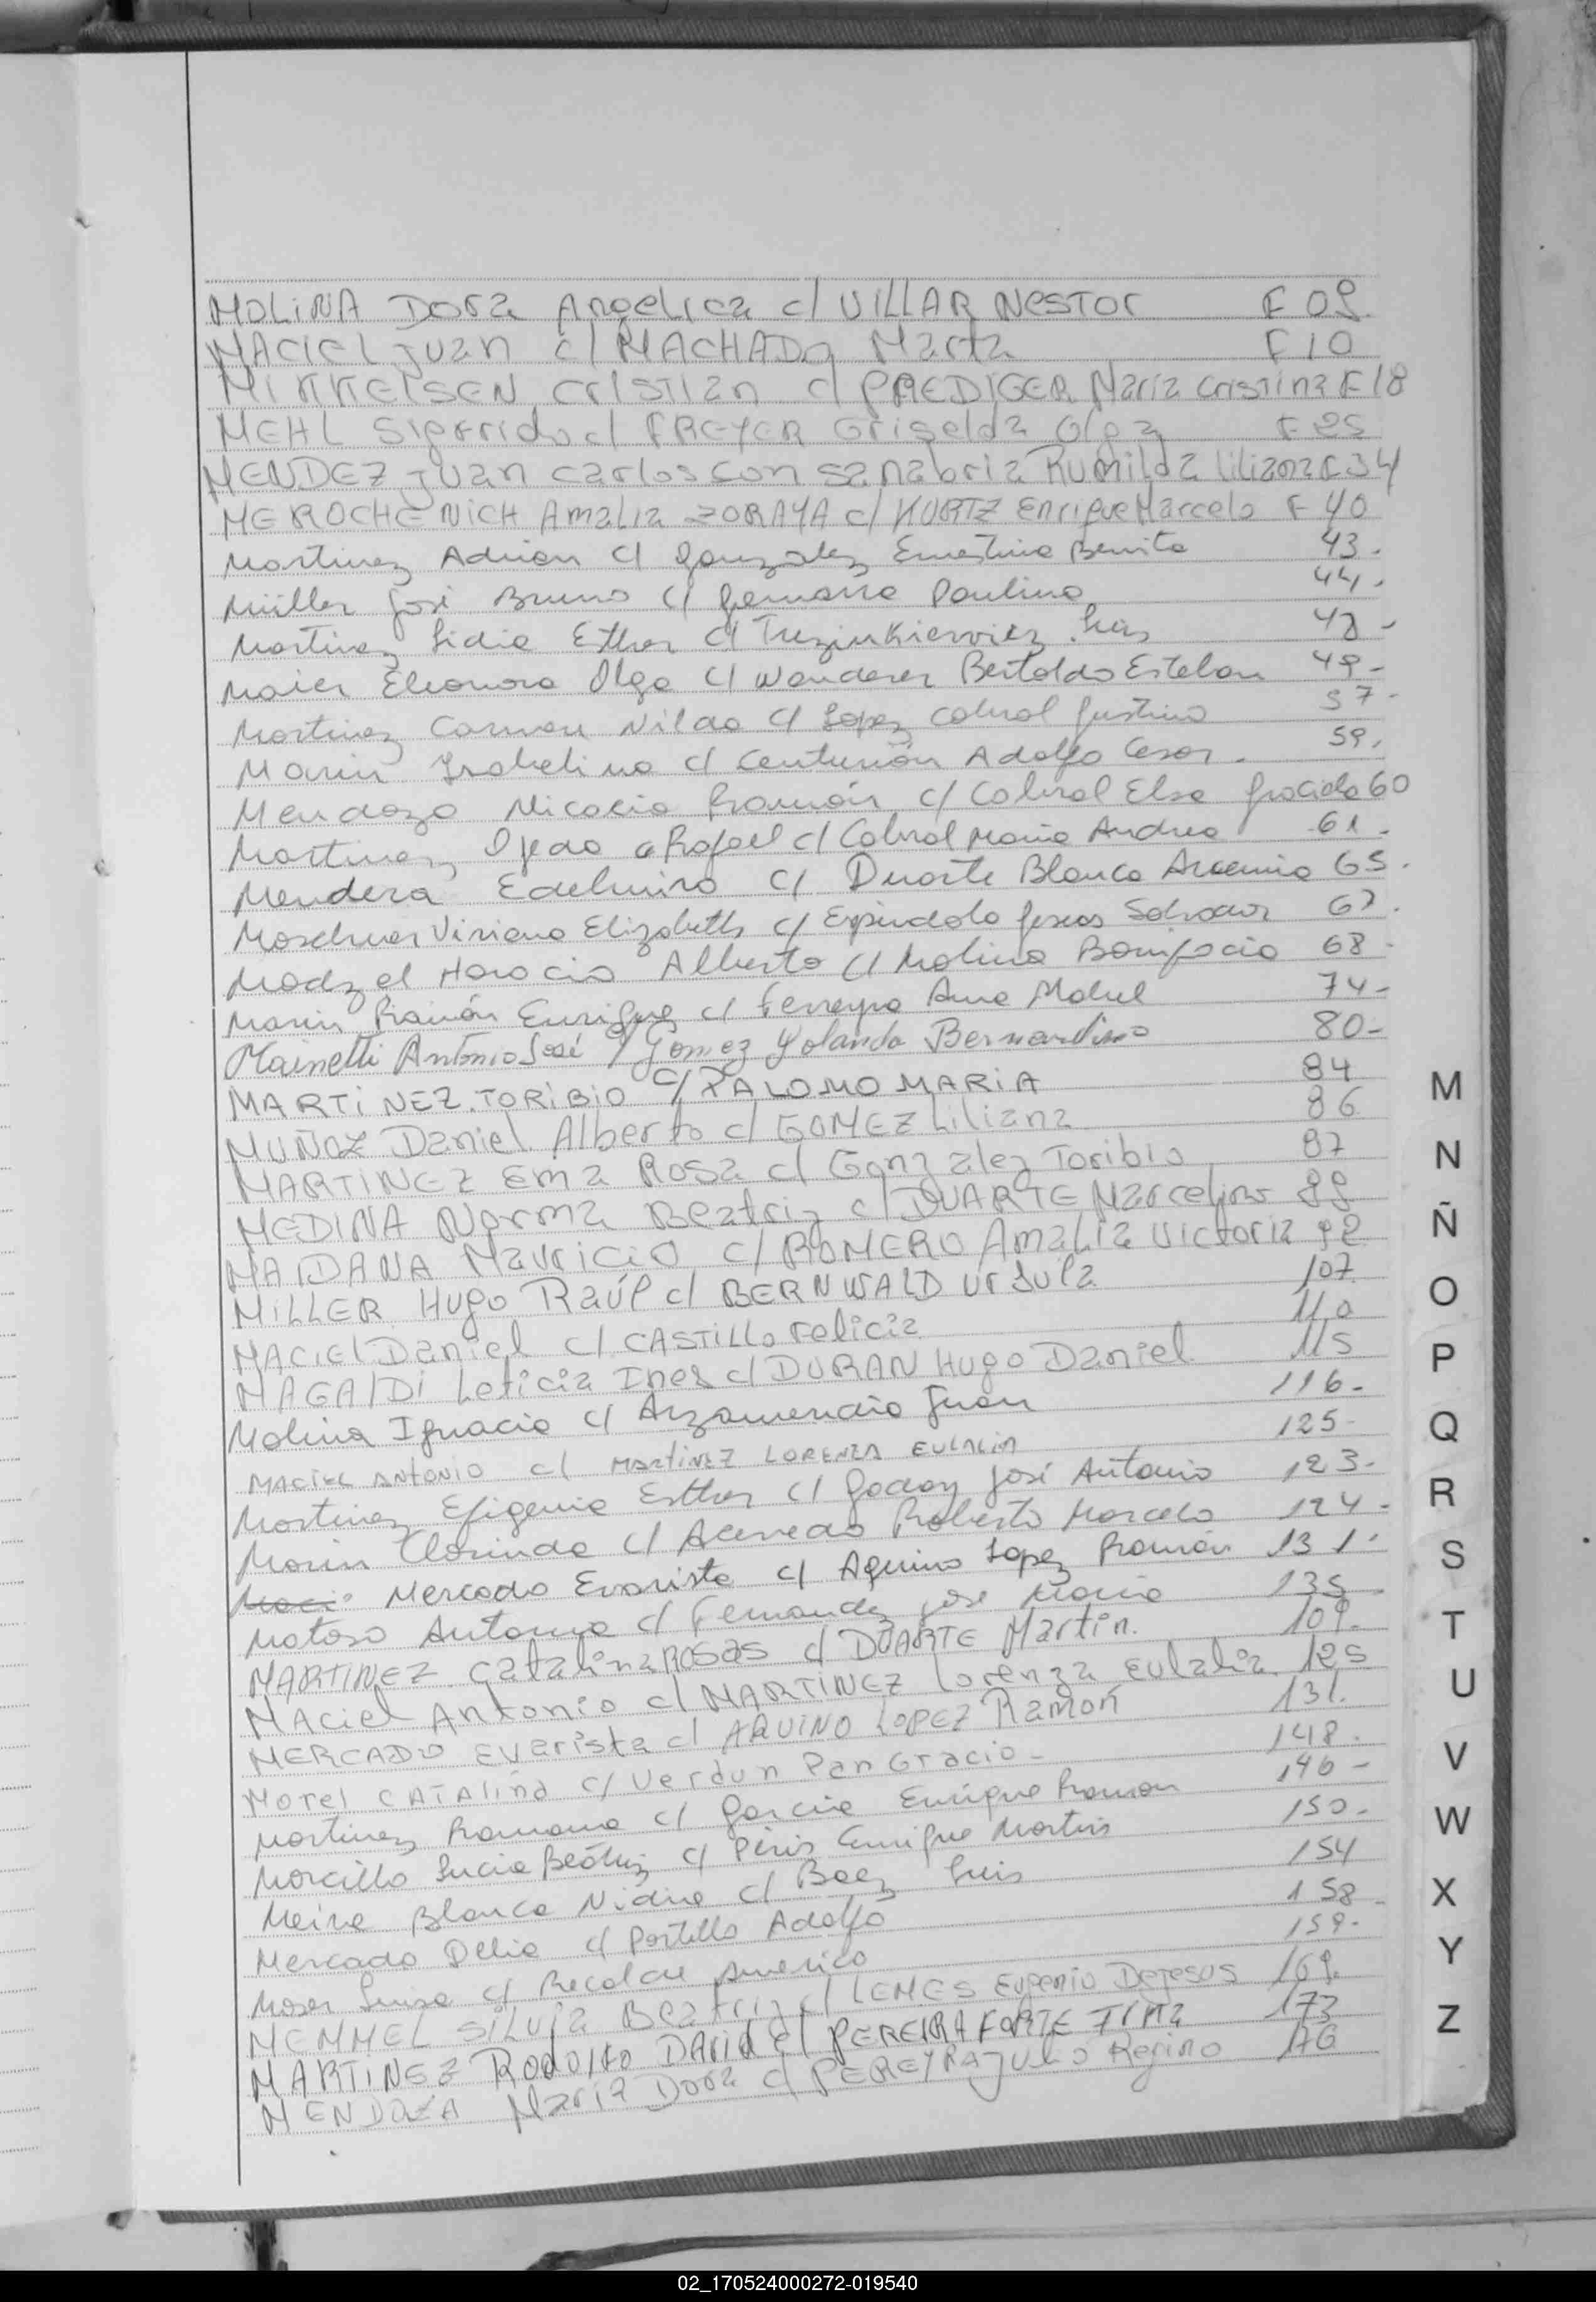 MOLINA Dora Angelica c/ VILLAR Nestor F 09.
MACIEL Juan c/ MACHADO Marta F 10
MIKKELSEN Cristian c/ PREDIGER Maria Cristina F 18
MEHL Sigfrido c/ FREYER Griselda Olga F 25
MENDEZ Juan Carlos con Sanabria Rumilda Liliana F 34
MEROCHENICH Amalia ZORAYA c/ KURTZ Enrique Marcelo F 40
Martinez Adrian c/ Gonzalez Ernestina Benita 43.
Müller José Bruno c/ Paulina 44.
Martinez Lidia Esther c/ Luis 48 -
Maier Eleonora Olga c/ Wanderer Bertoldo Esteban 49 -
Martinez Carmen Nilda c/ Lopez Cabral Justino 57 -
Marin Isabelino c/ Centurión Adolfo Cesar. 59.
Mendoza Nicasio Ramón c/ Cabral Elsa Placida 60
Martinez Ojeda Rafael c/ Cabral Maria Andrea 61.
Mendera Edelmiro c/ Duarte Blanca Arsenia 65.
Moschner Viviana Elizabeth c/ Espindola Jesus Salvador 67.
Madzel Horacio Alberto c/ Molina Bonifacia 68 -
Marin Ramón Enrique c/ Ferreyra Ana Mabel 74 -
Mainetti Antonio José c/ Gomez Yolanda Bernardina 80 -
MARTINEZ. TORIBIO c/ PALOMO MARIA 84
MUÑOZ Daniel Alberto c/ GOMEZ Liliana 86
MARTINEZ Ema Rosa c/ Gonzalez Toribio 87
MEDINA Norma Beatriz c/ DUARTE Marcelino 89
MAIDANA Mauricio c/ ROMERO Amalia Victoria 92
MILLER Hugo Raúl c/ BERNWALD Ursula 107
MACIEL Daniel c/ CASTILLO Felicia 110
MAGALDI Leticia Ines c/ DURAN Hugo Daniel 115
Molina Ignacio c/ Arzamendia Juan 116 -
MACIEL ANTONIO c/ MARTINEZ LORENZA EULALIA 125 -
Martinez Efigenia Esther c/ Godoy José Antonio 123 -
Marin Clorinda c/ Acevedo Roberto Marcelo 124 -
Maci Mercado Evarista c/ Aquino Lopez Ramón 131 -
Matoso Antonia c/ Fernandez José Maria 135
MARTINEZ Catalina ROSAS c/ DUARTE Martin. 109.
Maciel Antonio c/ MARTINEZ Lorenza Eulalia 125
MERCADO Evarista c/ AQUINO LOPEZ Ramón 131.
Morel CATALINA c/ Verdun PanGracio - 148.
Martinez Ramona c/ Garcia Enrique Ramon 146 -
Morcillo Lucia Beátriz c/ Piris Enrique Martin 150 -
Meira Blanca Nidia c/ Baez Luis 154
Mercado Delia c/ Portillo Adolfo 158 -
Moser Luisa c/ Recalde Americo 159 -
MEMMEL Silvia Beatriz c/ LEMES Eugenio DeJesus 169.
MARTINEZ Rodolfo David c/ PEREIRA FORTE 173
MENDOZA Maria Dora c/ PEREYRA Julio Regino 176
M
N
Ñ
O
P
Q
R
S
T
U
V
W
X
Y
Z
02_170524000272-019540